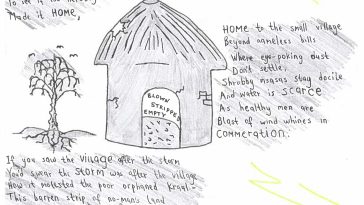 Made it HOME,
HOME to the small village
Beyond nameless hills
Where eye-poking dust
Don't settle.
Shrubby msasas stay docile
And water is scarce
As healthy men are
Blast of wind whines in
Commeration.
BLOWN
STRIPPED
EMPTY
If you saw the village after the storm
You'd swear the storm was after the village
How it molested the poor orphaned Kraal-
This barren strip of no-man's land